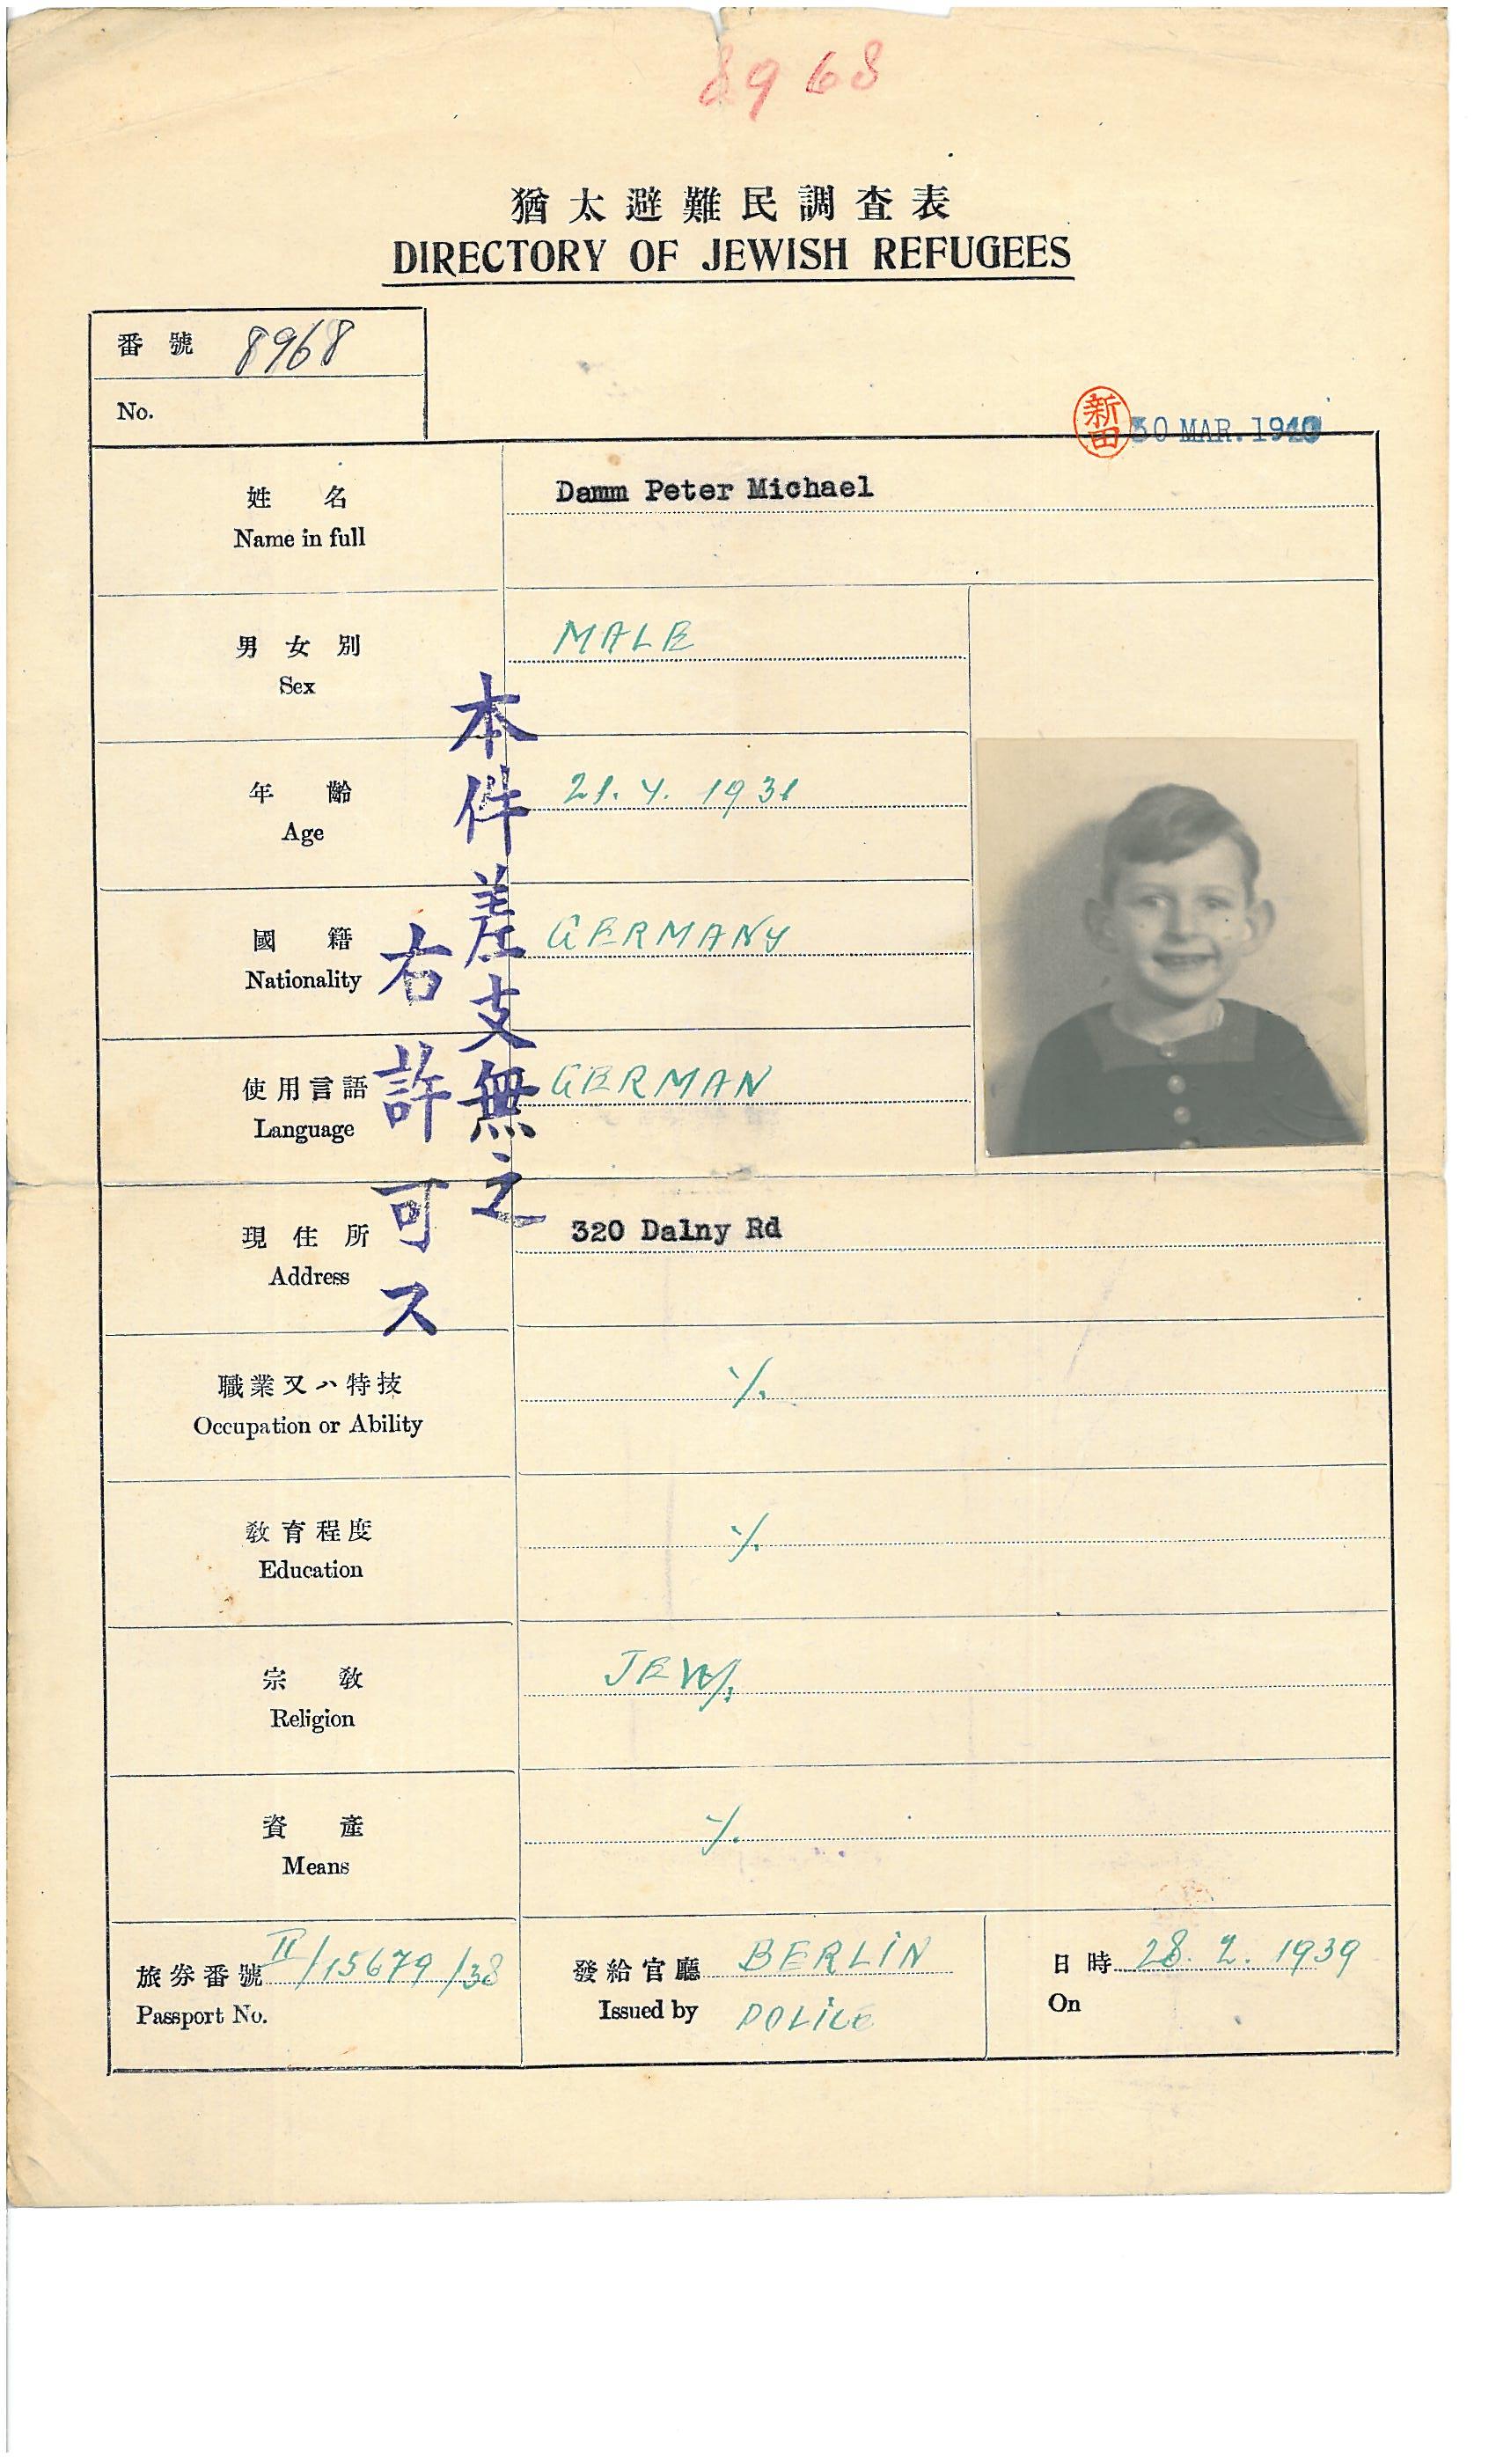 8968
猶太避難民調査表
DIRECTORY OF JEWISH REFUGEES
番號 8968
No.
新田 30 MAR. 1940
姓名 Damm Peter Michael
Name in full
男女別 MALE
Sex
年齡 21. 4. 1931
Age
國籍 GERMANY
Nationality
使用言語 GERMAN
Language
本件差支無之
右許可ス
現住所 320 Dalny Rd
Address
職業又ハ特技 ·/.
Occupation or Ability
教育程度 ·/.
Education
宗教 JEW/.
Religion
資產 ·/.
Means
旅券番號 II/15679/38
Passport No.
發給官廳 BERLIN
Issued by POLICE
日時 28. 2. 1939
On